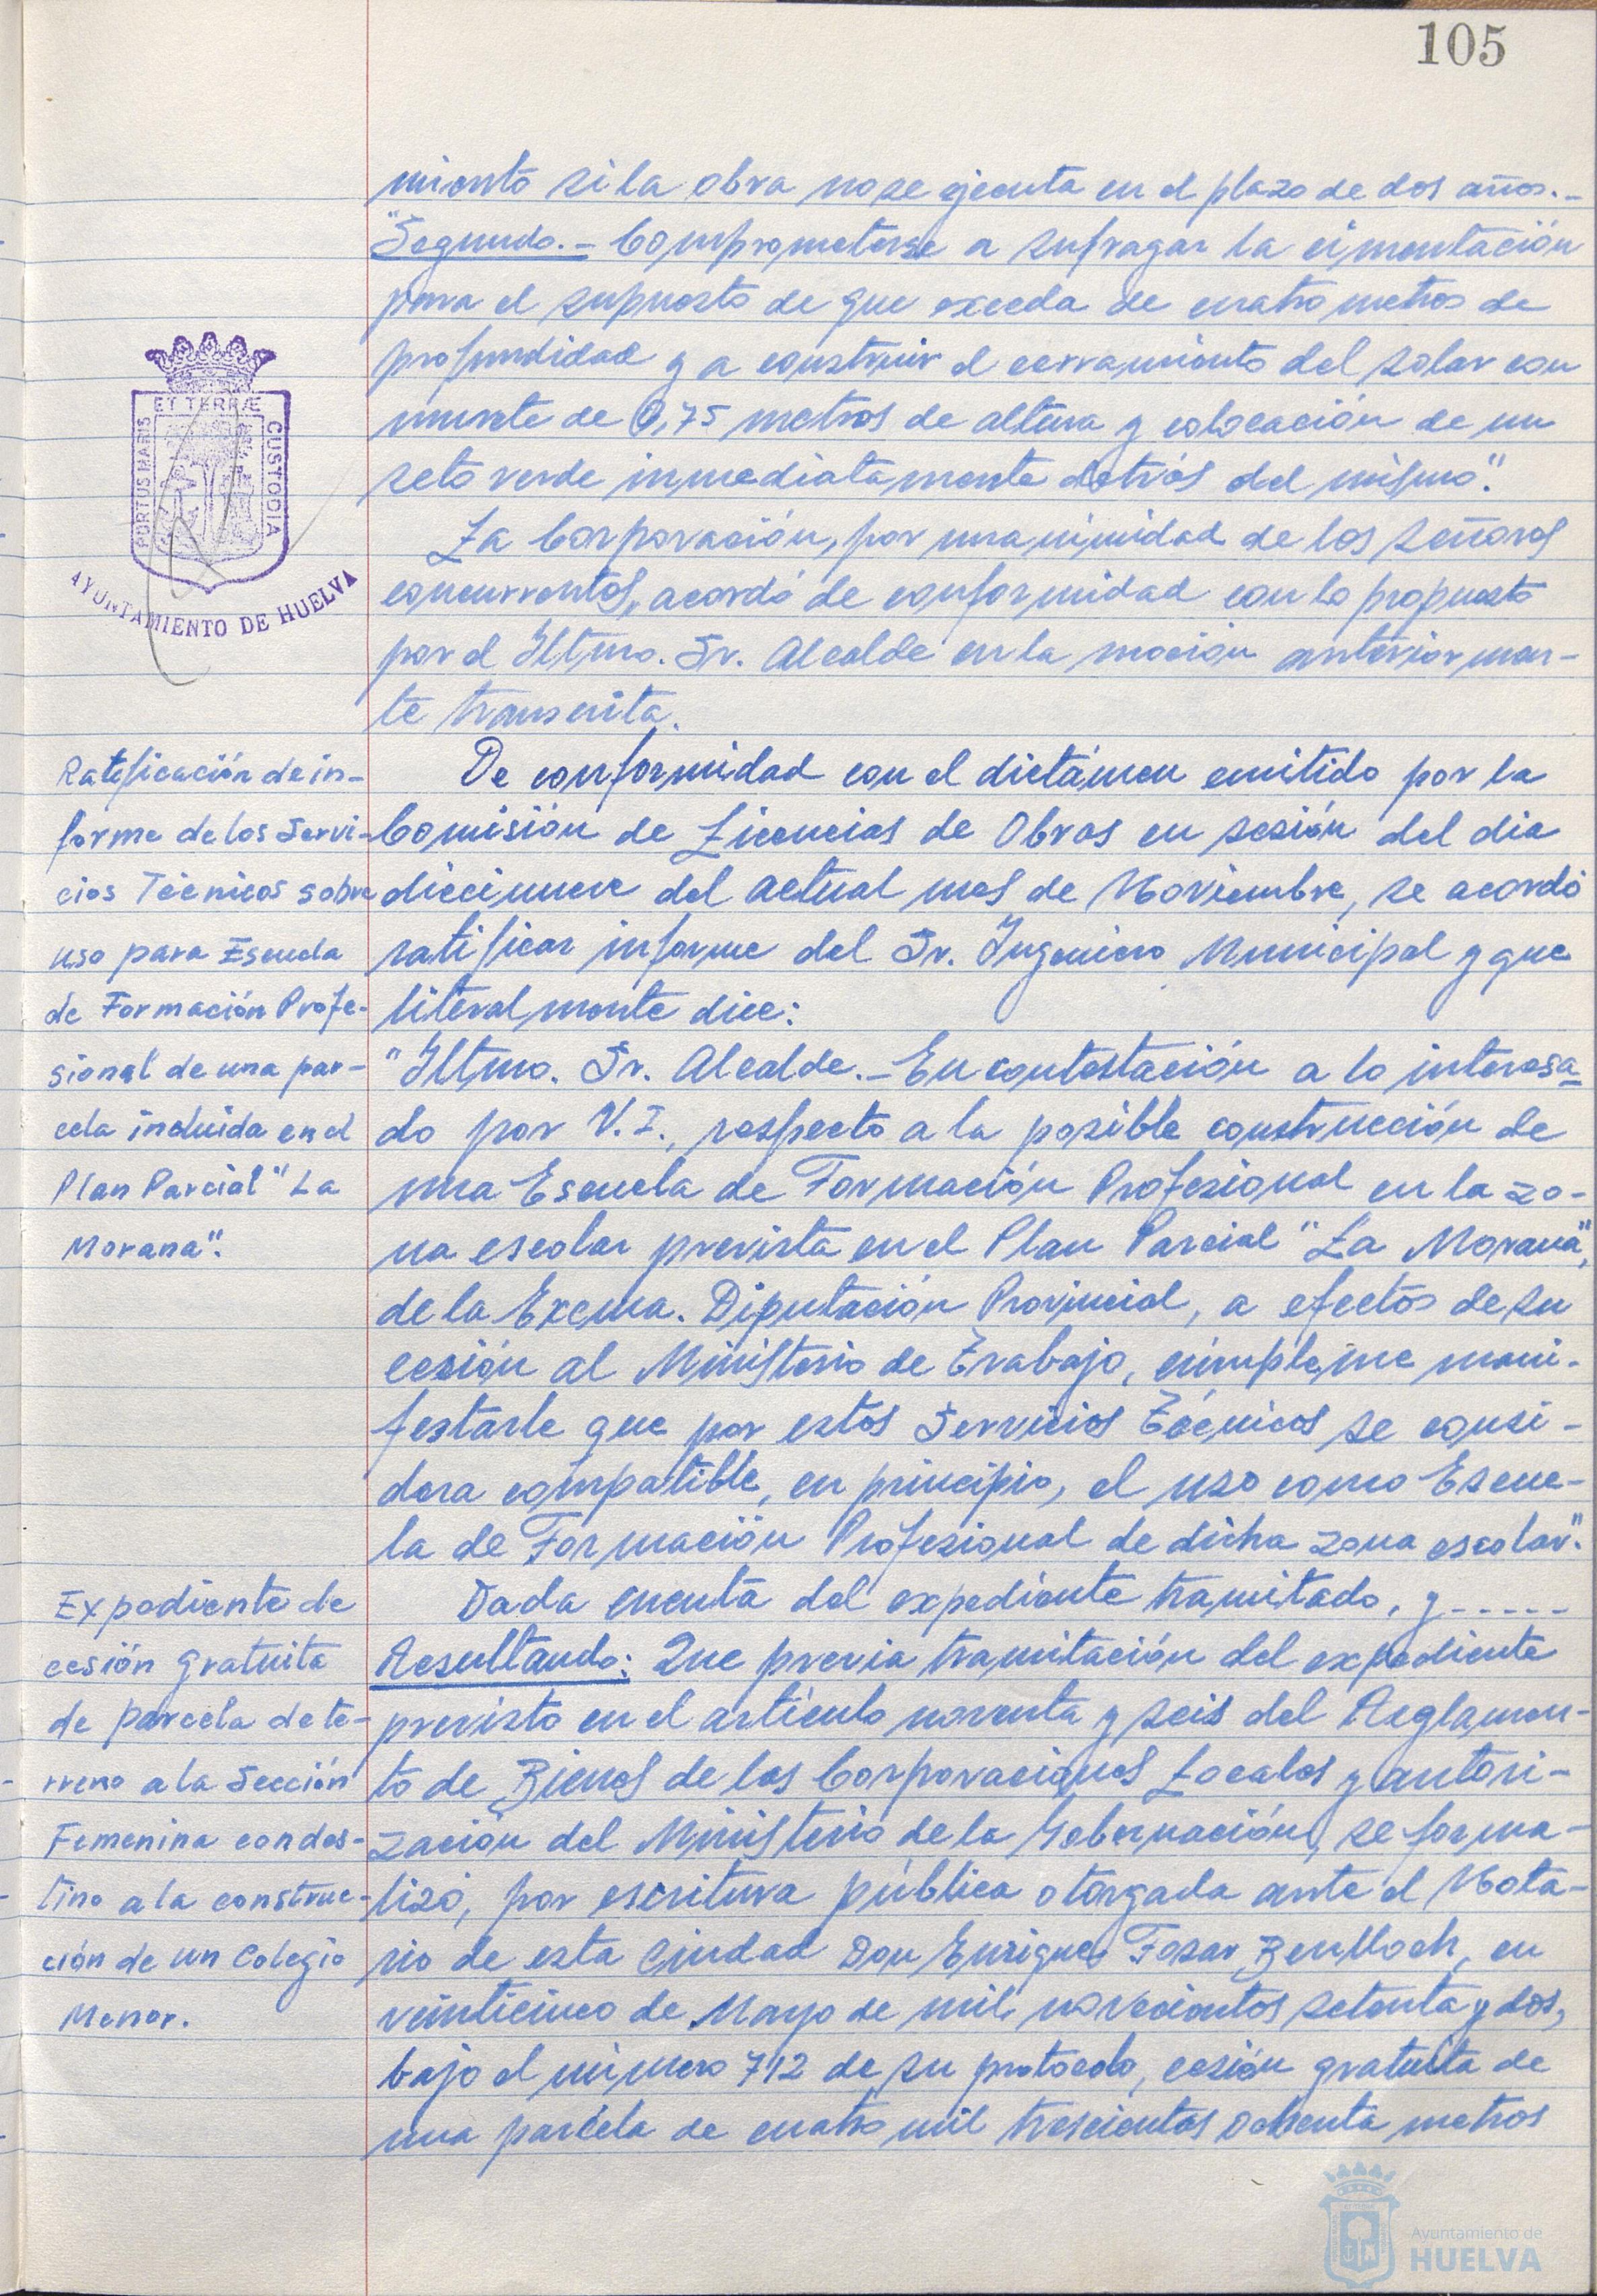 105
miento si la obra no se ejecuta en el plazo de dos años.-
"Segundo.- Comprometerse a sufragar la cimentación
para el supuesto de que exceda de cuatro metros de
profundidad y a construir el cerramiento del solar con
murete de 0,75 metros de altura y colocación de un
seto verde inmediatamente detrás del mismo".
La Corporación, por unanimidad de los señores
concurrentes, acordó de conformidad con lo propuesto
por el Iltmo. Sr. Alcalde en la moción anteriormen-
te transcrita.
ET TERRÆ
PORTUS MARIS
CUSTODIA
AYUNTAMIENTO DE HUELVA
Ratificación de in-
forme de los Servi-
cios Técnicos sobre
uso para Escuela
de Formación Profe-
sional de una par-
cela incluida en el
Plan Parcial "La
Morana".
De conformidad con el dictámen emitido por la
Comisión de Licencias de Obras en sesión del dia
diecinueve del actual mes de Noviembre, se acordó
ratificar informe del Sr. Ingeniero Municipal y que
literalmente dice:
"Iltmo. Sr. Alcalde.- En contestación a lo interesa-
do por V.I., respecto a la posible construcción de
una Escuela de Formación Profesional en la zo-
na escolar prevista en el Plan Parcial "La Morana",
de la Excma. Diputación Provincial, a efectos de su
cesión al Ministerio de Trabajo, cúmpleme mani-
festarle que por estos Servicios Técnicos se consi-
dera compatible, en principio, el uso como Escue-
la de Formación Profesional de dicha zona escolar".
Expediente de
cesión gratuita
de parcela de te-
rreno a la Sección
Femenina con des-
tino a la construc-
ción de un Colegio
Menor.
Dada cuenta del expediente tramitado, y-----
Resultando: Que previa tramitación del expediente
previsto en el artículo noventa y seis del Reglamen-
to de Bienes de las Corporaciones Locales y autori-
zación del Ministerio de la Gobernación, se forma-
lizó, por escritura pública otorgada ante el Nota-
rio de esta Ciudad Don Enrique Fosar Benlloch, en
veinticinco de Mayo de mil novecientos setenta y dos,
bajo el número 712 de su protocolo, cesión gratuita de
una parcela de cuatro mil trescientos ochenta metros
Ayuntamiento de
HUELVA